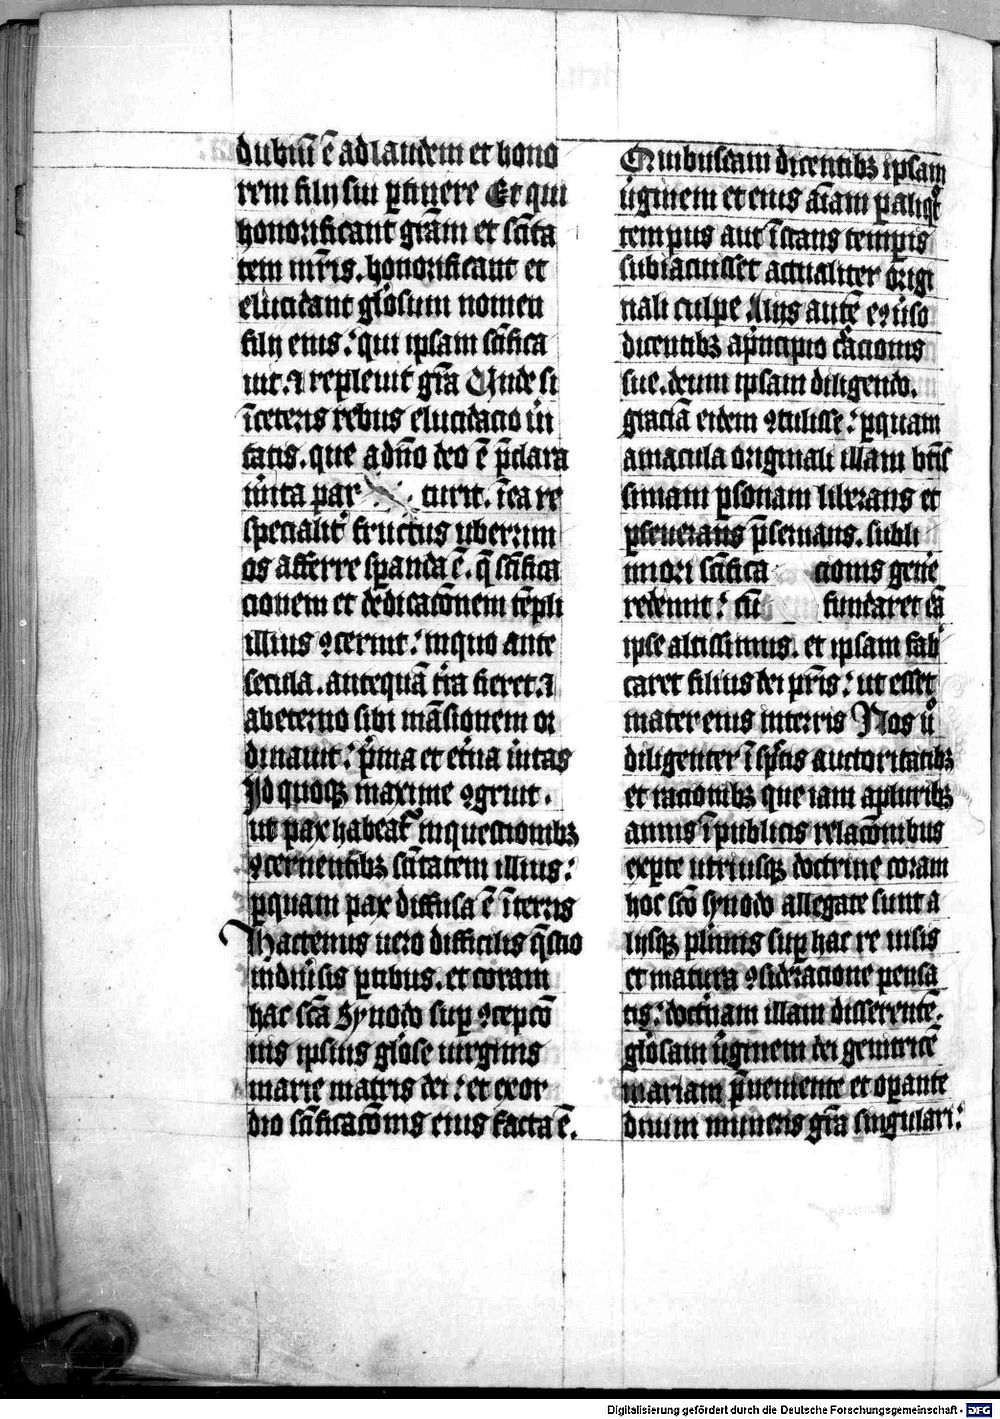 dubiu᷑ e᷑ ad laudem et hono
rem filij sui ꝑtinere Et qui
honorificant gr̄am et sc̄ita
tem mr̄is. honorificant et
elucidant gl̄osum nomen
filij eius: qui ipsam sc̄ifica
uit. ⁊ repleuit gr̄a Unde si
īceteris rebus elucidacio ūi
tatis. que ad dn̄o deo ē p̄clara
iūta par turit. īea re
specialit̉ fructus uberrim
os afferre sꝑanda ē. q̄ sc̄ifica
cionem et dedicac̄onem tēpli
illius ꝯcernit: inquo ante
secula. antequā t̉ra fieret. ⁊
ab eterno sibi māsionem or
dinauit: p̉ma et et̉na ūitas
Id quoqꝫ maxime ꝯgruit.
ut pax habeat̉ inquestionibꝫ
ꝯcernentibꝫ sc̄itatem illius:
ꝑquam pax diffusa ē ī terris
Hactenus uero difficilis q̄stio
indiủsis ꝑtibus. et coram
hac sc̄a Synodo suꝑ ꝯcepcō
nis ipsius gl̄ose uirginis
marie matris dei: et exor
dio sc̄ificac̄onis eius facta ē.
Quibusdam dicentibꝫ ipsam
ủginem et eius aīam ꝑ aliq̊t
tempus aut īstans temꝑis
subiacuisset actualiter origi
nali culpe Alijs autē eꝯủso
dicentibꝫ ap̉ncipio c̉acionis
sue. deum ipsam diligendo.
graciā eidem ꝯtulisse: ꝑquam
amacula originali illam btīs
simam ꝑsonam liberans et
p̄seruans. subli
miori sc̄ifica cionis gene̓
redemit: cū fundaret eā
ipse altissimus. et ipsam fab̓
caret filius dei pr̄is: ut esset
mater eius interris Nos u̓
diligenter īspc̄tis auctoritatibꝫ
et racionibꝫ que iam apluribꝫ
annis ī publicis relac̄onibus
exꝑte utriusqꝫ doctrine coram
hoc sc̄o synodo allegate sunt a
lijsqꝫ plurīis suꝑ hac re uisis
et matura ꝯsideracione pensa
tis: doctrinam illam disserentē.
gl̄osam u̓ginem dei genitricē
mariam p̄ueniente et oꝑante
diuini numeris gr̄a singulari:
Digitalisierung gefördert durch die Deutsche Forschungsgemeinschaft - DFG